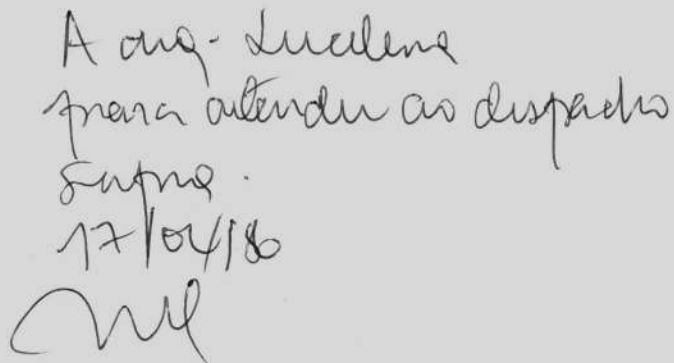 A arq. Lucilena
para atender ao despacho
supra.
17/04/86